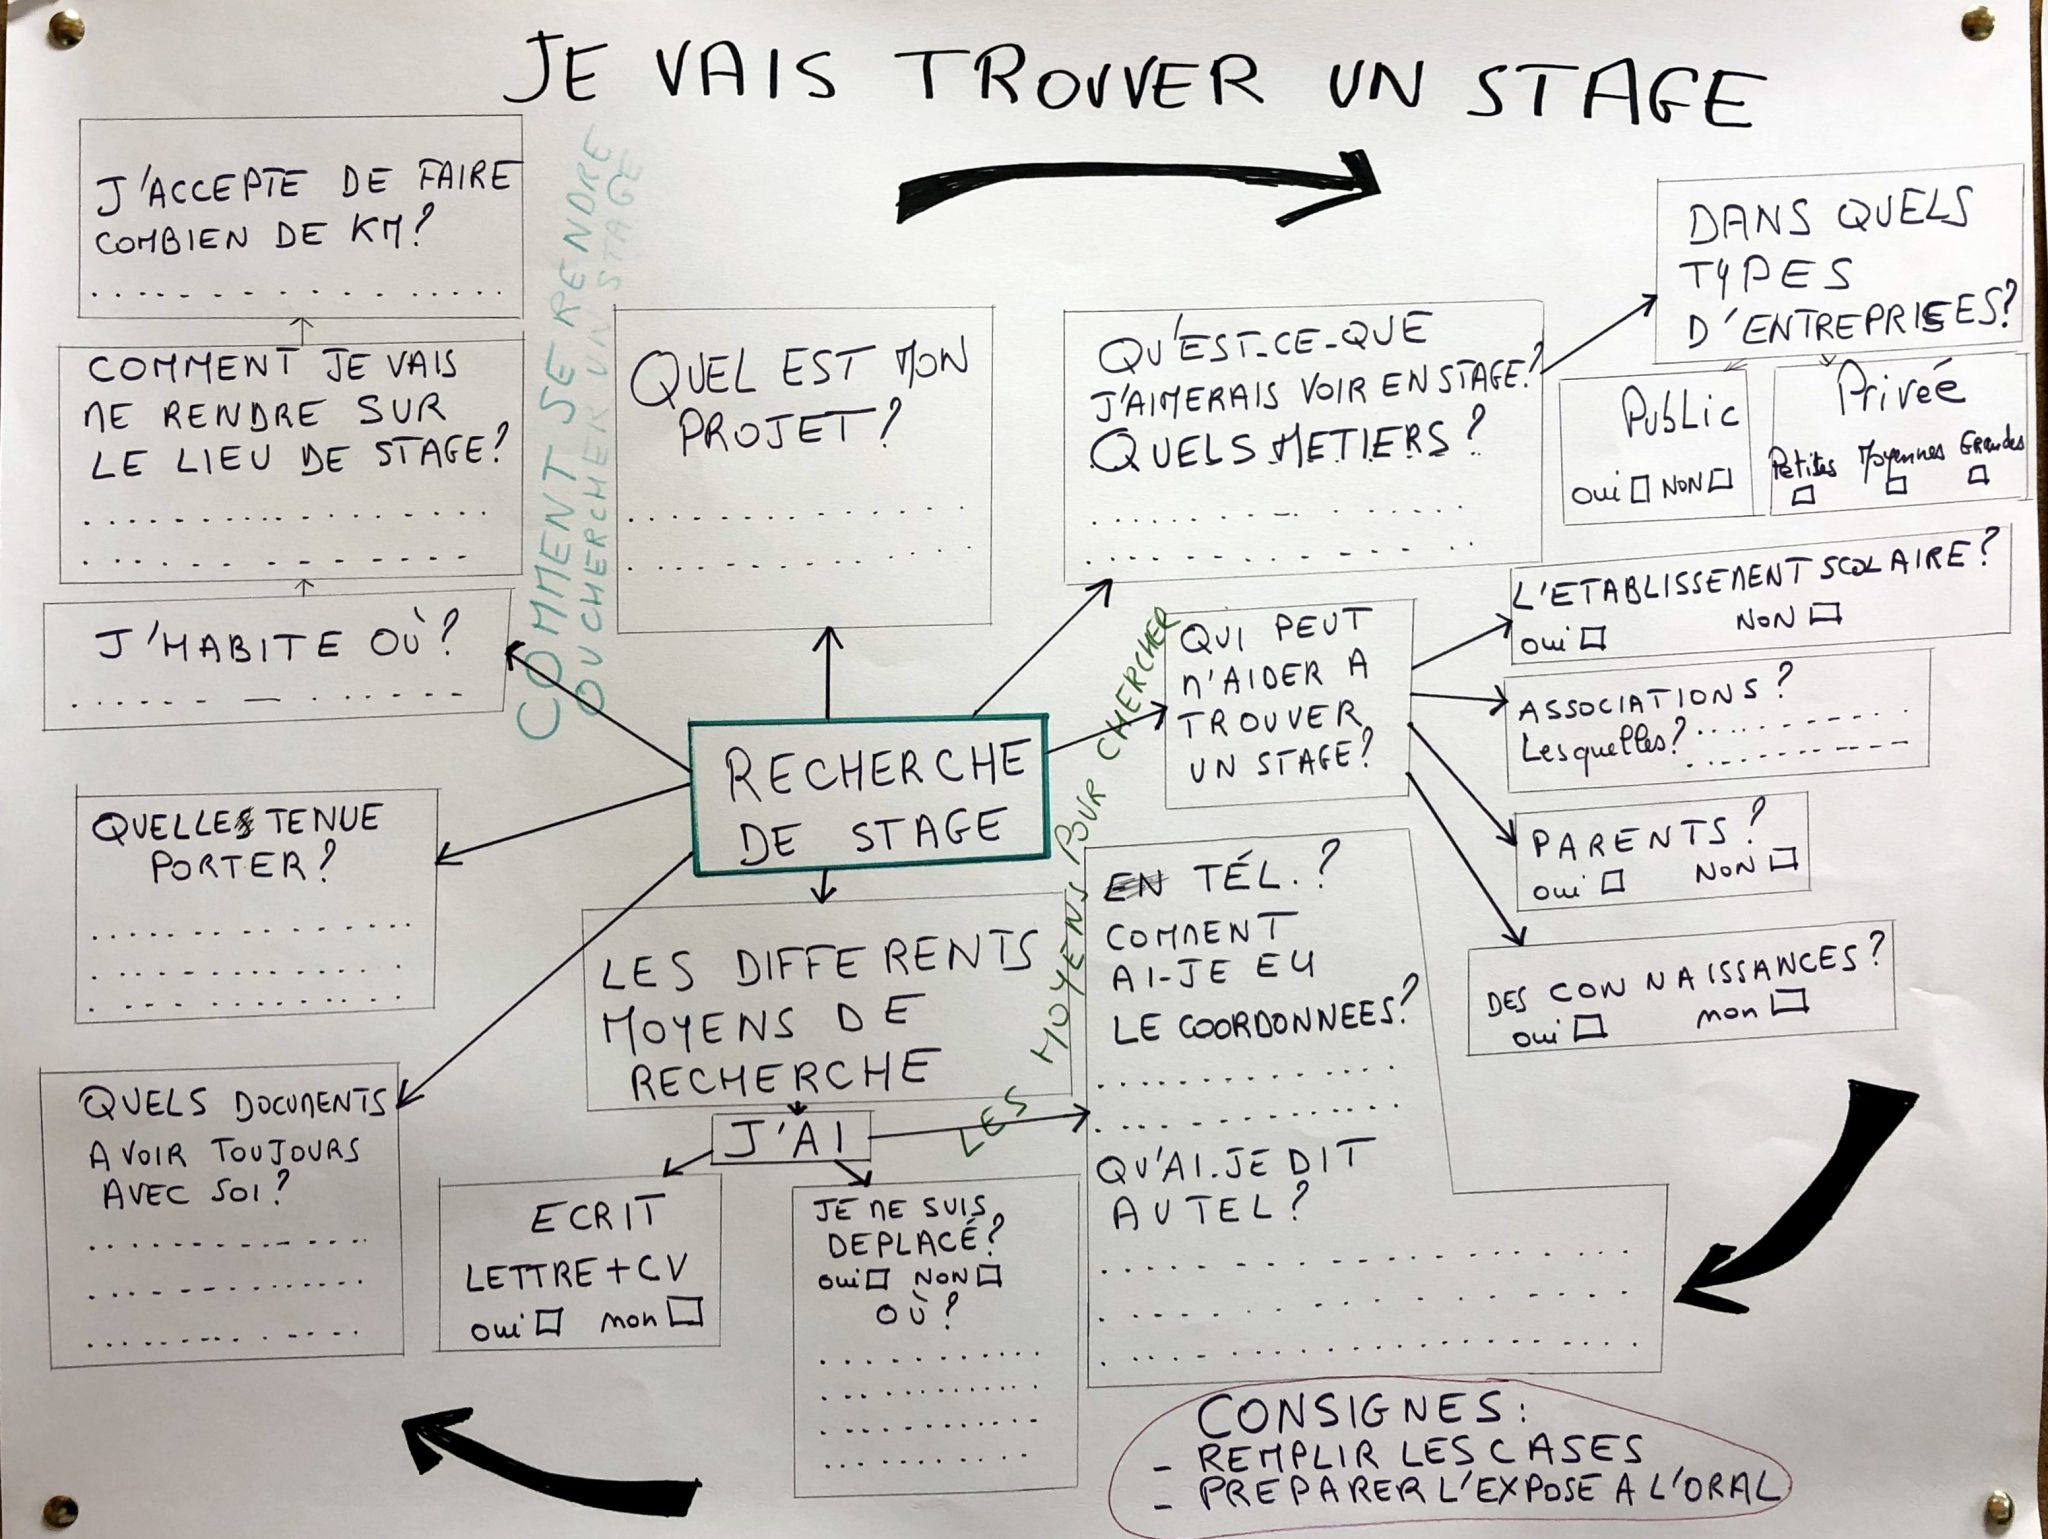 JE VAIS TROUVER UN STAGE
J'ACCEPTE DE FAIRE
COMBIEN DE KM?
COMMENT JE VAIS
ME RENDRE SUR
LE LIEU DE STAGE?
J'HABITE OÙ?
COMMENT SE RENDRE
OU CHERCHER UN STAGE
QUEL EST MON
PROJET?
QU'EST-CE-QUE
J'AIMERAIS VOIR EN STAGE?
QUELS METIERS?
DANS QUELS
TYPES
D'ENTREPRISES?
Public
oui □ NON □
Priveé
Petites Moyennes Grandes
□ □ □
RECHERCHE
DE STAGE
QUI PEUT
M'AIDER A
TROUVER
UN STAGE?
L'ETABLISSEMENT SCOLAIRE?
oui □ NON □
ASSOCIATIONS?
Lesquelles?
PARENTS?
oui □ NON □
DES CONNAISSANCES?
oui □ non □
LES MOYENS POUR CHERCHER
QUELLE TENUE
PORTER?
QUELS DOCUMENTS
AVOIR TOUJOURS
AVEC SOI?
LES DIFFERENTS
MOYENS DE
RECHERCHE
J'AI
ECRIT
LETTRE + CV
oui □ non □
JE ME SUIS
DEPLACÉ?
oui □ NON □
OÙ?
EN TÉL.?
COMMENT
AI-JE EU
LE COORDONNEES?
QU'AI-JE DIT
AU TEL?
CONSIGNES:
- REMPLIR LES CASES
- PREPARER L'EXPOSE A L'ORAL